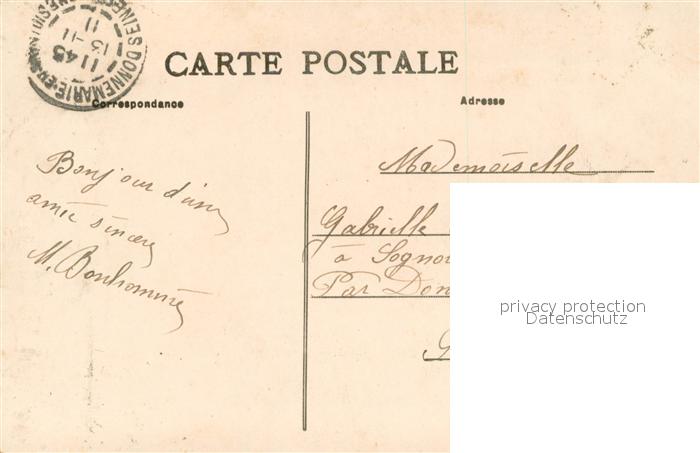 DONNEMARIE-EN-
11 45
13 - 11
11
CARTE POSTALE
Correspondance
Adresse
Bonjour d'une
amie sincère
M. Bonhomme
Mademoiselle
Gabrielle
à
Par Don
privacy protection
Datenschutz